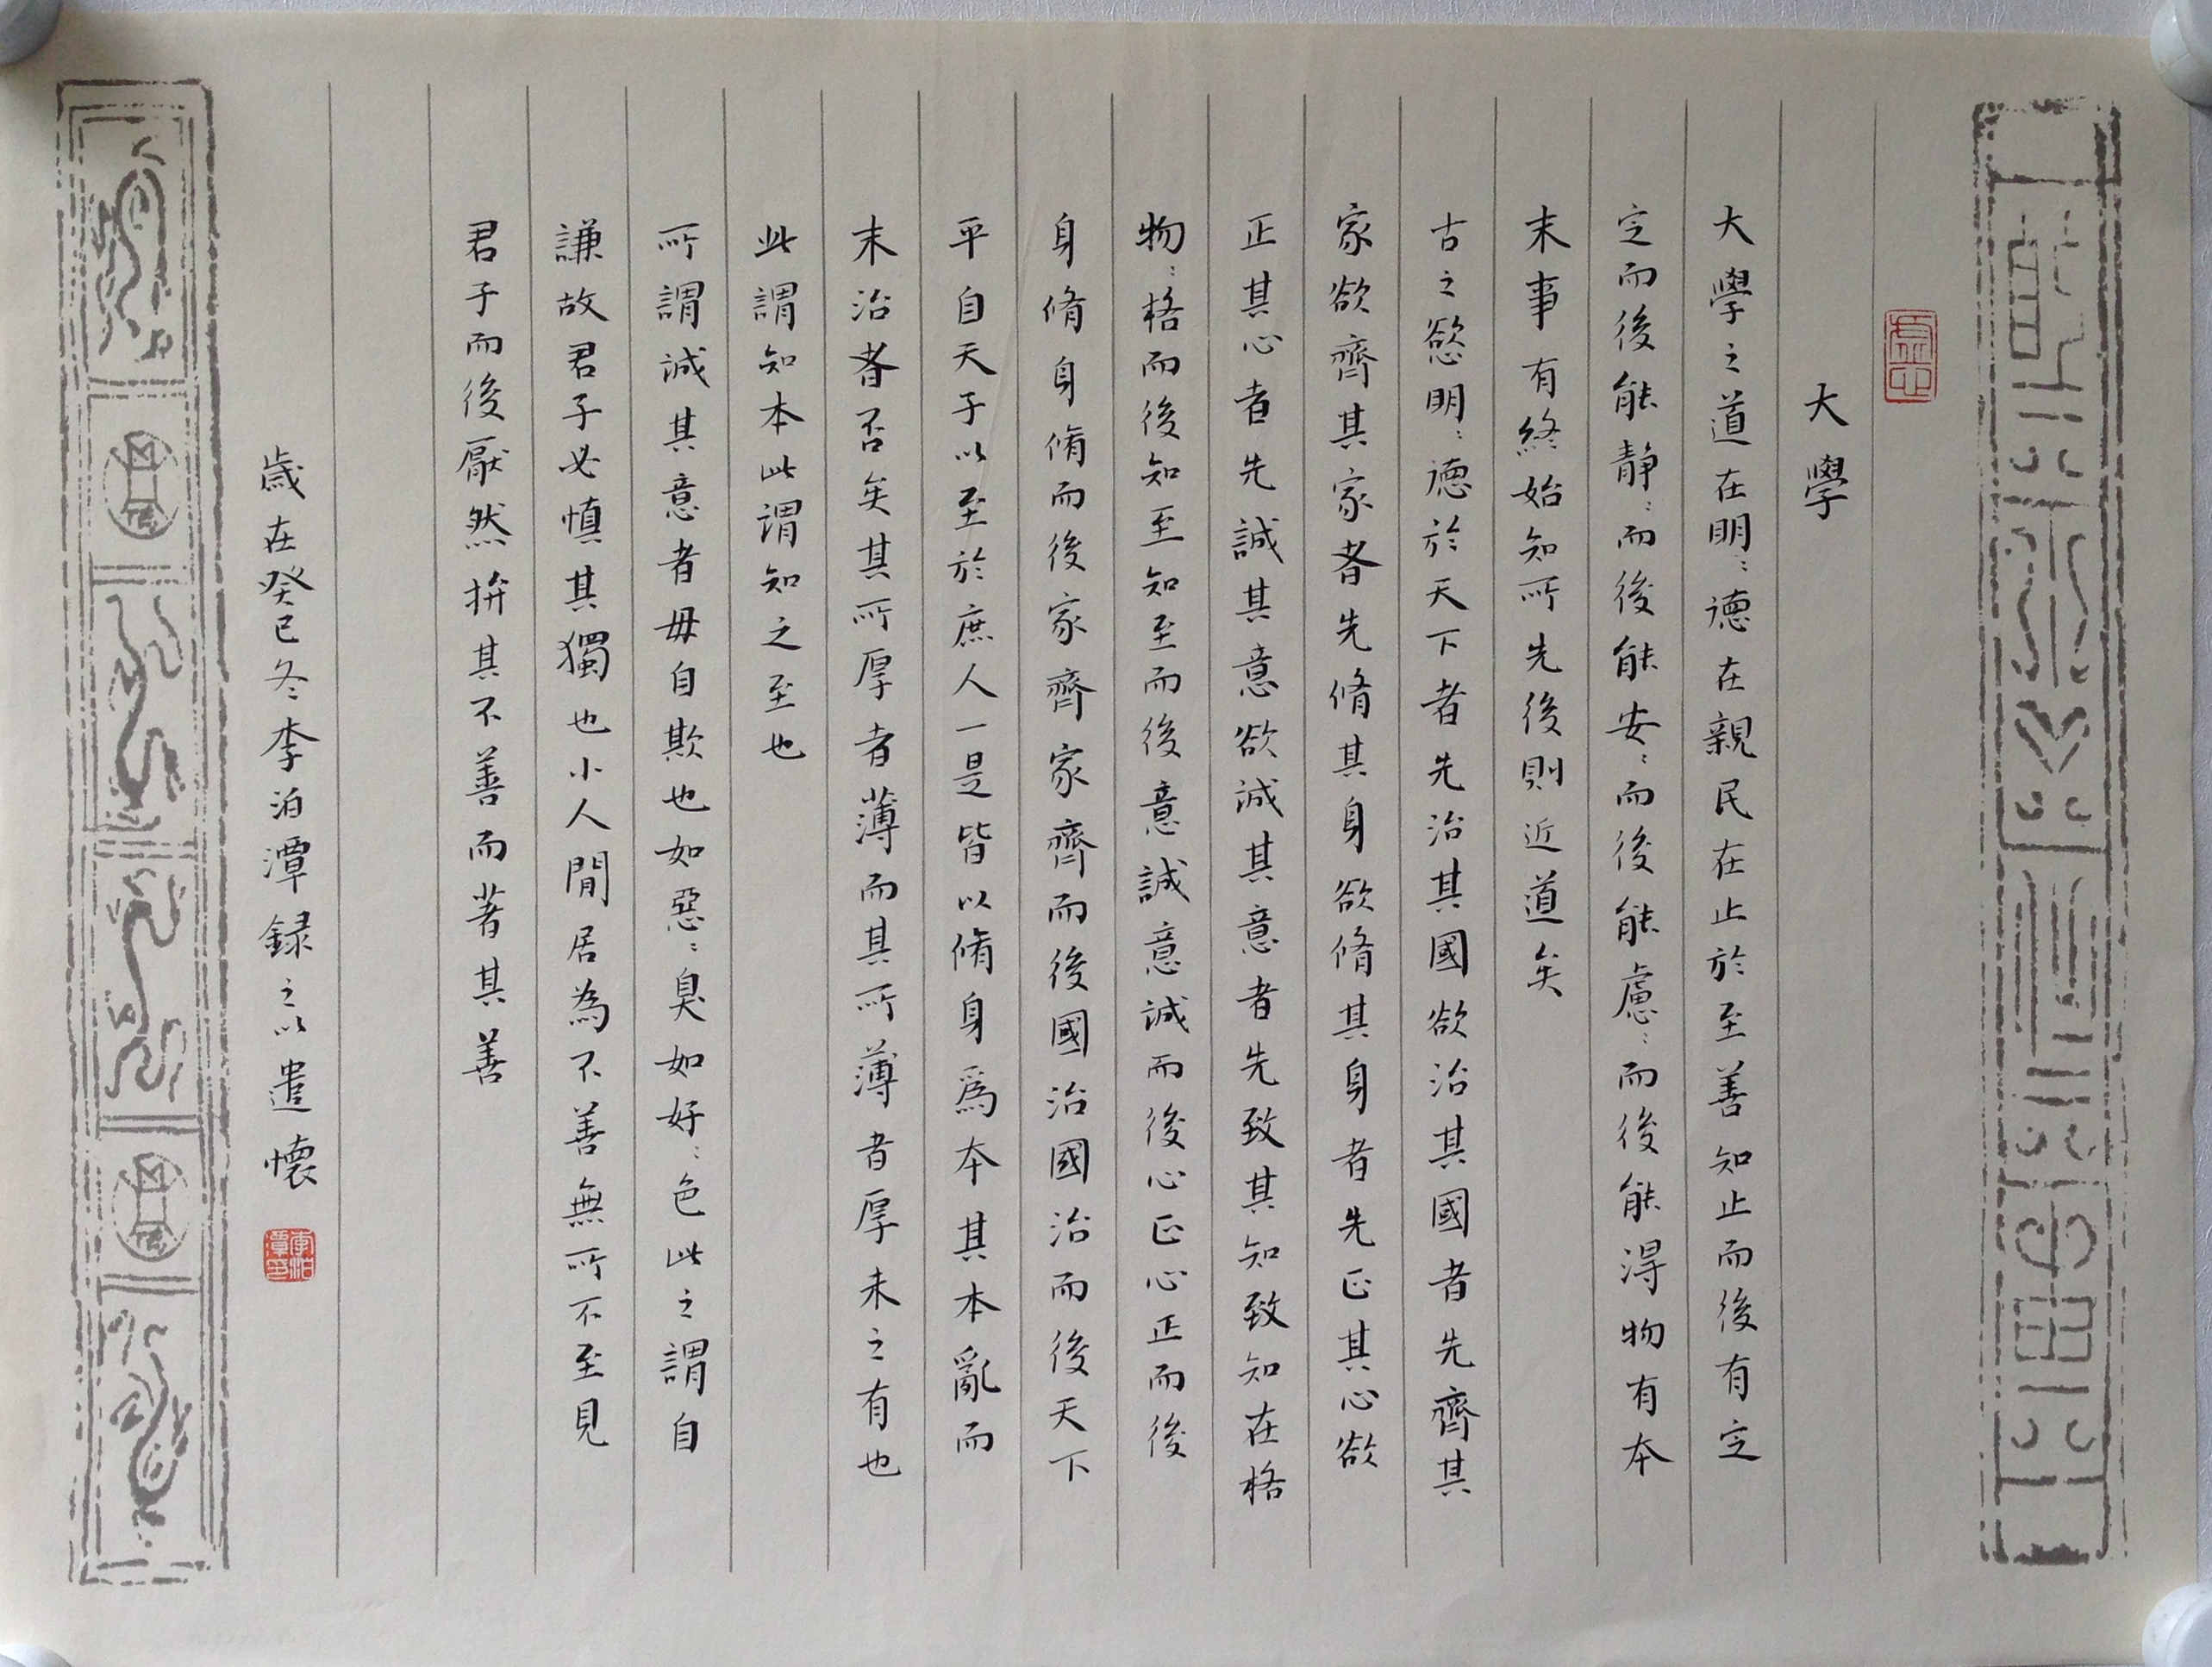 大學
大學之道在明:德在親民在止於至善知止而後有定
定而後能靜:而後能安:而後能慮:而後能得物有本
末事有終始知所先後則近道矣
古之慾明:德於天下者先治其國欲治其國者先齊其
家欲齊其家者先脩其身欲脩其身者先正其心欲
正其心者先誠其意欲誠其意者先致其知致知在格
物:格而後知至知至而後意誠意誠而後心正心正而後
身脩身脩而後家齊家齊而後國治國治而後天下
平自天子以至於庶人一是皆以脩身為本其本亂而
末治者否矣其所厚者薄而其所薄者厚未之有也
此謂知本此謂知之至也
所謂誠其意者毋自欺也如惡:臭如好:色此之謂自
謙故君子必慎其獨也小人閒居為不善無所不至見
君子而後厭然揜其不善而著其善
歲在癸巳冬李泊潭録之以遣懷
李泊潭印